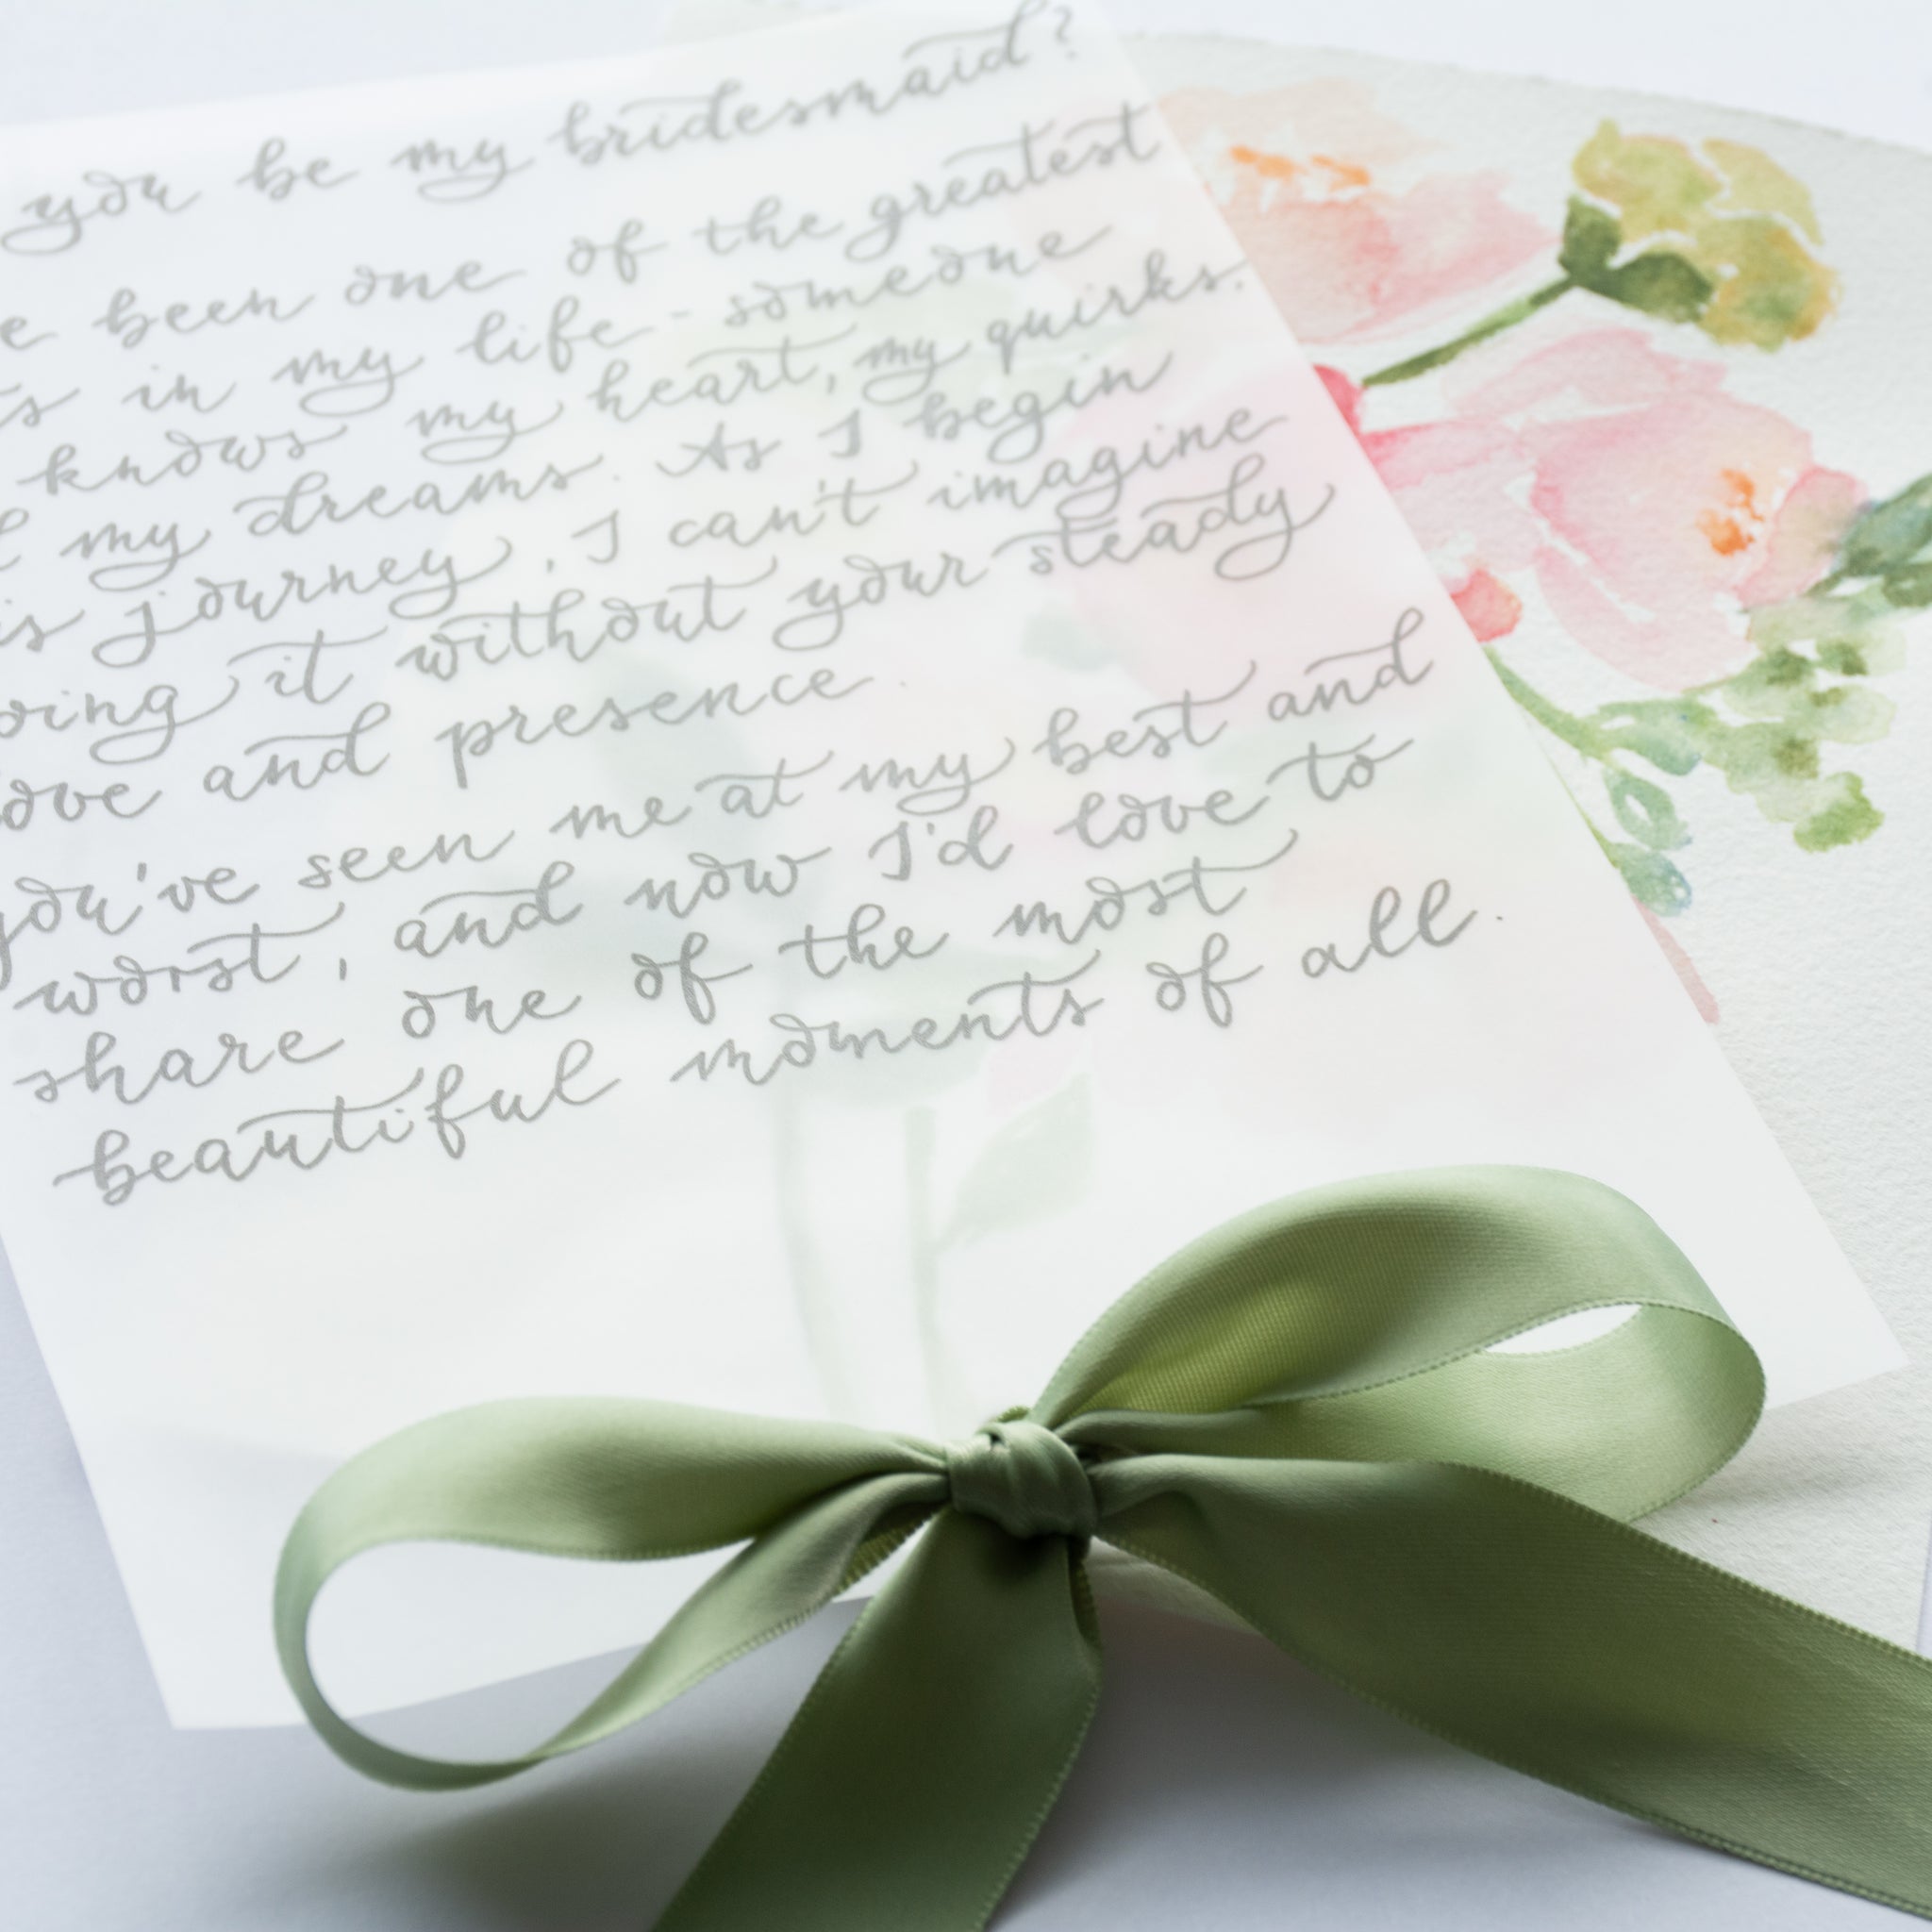 you be my bridesmaid?
e been one of the greatest
s in my life - someone
knows my heart, my quirks.
my dreams. As I begin
is journey, I can't imagine
oing it without your steady
ove and presence.
you've seen me at my best and
worst, and now I'd love to
share one of the most
beautiful moments of all.